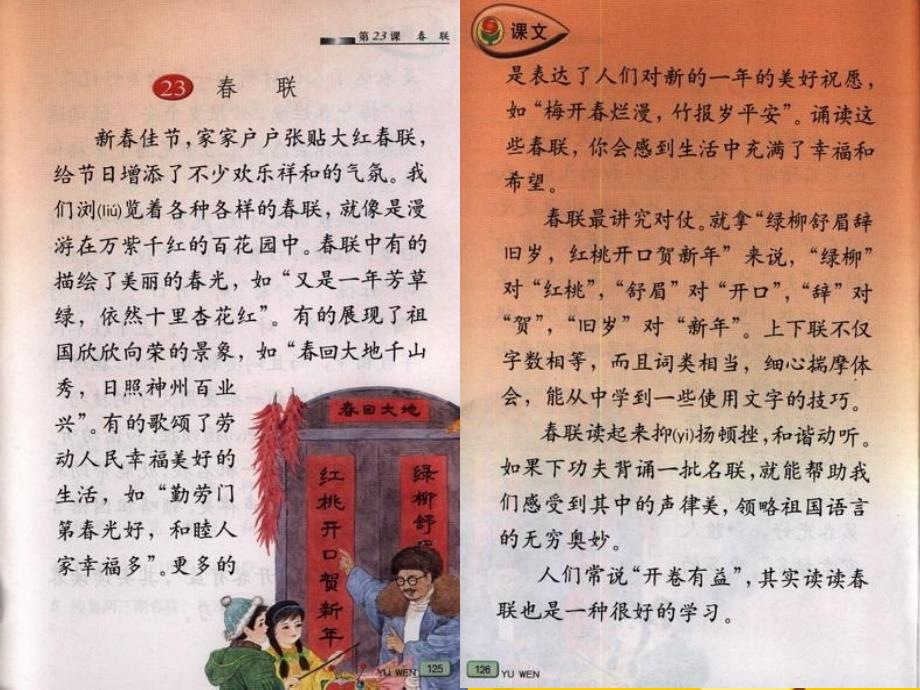 第23课 春 联
23 春 联
新春佳节，家家户户张贴大红春联，
给节日增添了不少欢乐祥和的气氛。我
们浏(liú)览着各种各样的春联，就像是漫
游在万紫千红的百花园中。春联中有的
描绘了美丽的春光，如“又是一年芳草
绿，依然十里杏花红”。有的展现了祖
国欣欣向荣的景象，如“春回大地千山
秀，日照神州百业
兴”。有的歌颂了劳
动人民幸福美好的
生活，如“勤劳门
第春光好，和睦人
家幸福多”。更多的
春回大地
红桃开口贺新年
绿柳舒
YU WEN 125
课文
是表达了人们对新的一年的美好祝愿，
如“梅开春烂漫，竹报岁平安”。诵读这
些春联，你会感到生活中充满了幸福和
希望。
春联最讲究对仗。就拿“绿柳舒眉辞
旧岁，红桃开口贺新年”来说，“绿柳”
对“红桃”，“舒眉”对“开口”，“辞”对
“贺”，“旧岁”对“新年”。上下联不仅
字数相等，而且词类相当，细心揣摩体
会，能从中学到一些使用文字的技巧。
春联读起来抑(yì)扬顿挫，和谐动听。
如果下功夫背诵一批名联，就能帮助我
们感受到其中的声律美，领略祖国语言
的无穷奥妙。
人们常说“开卷有益”，其实读读春
联也是一种很好的学习。
126 YU WEN